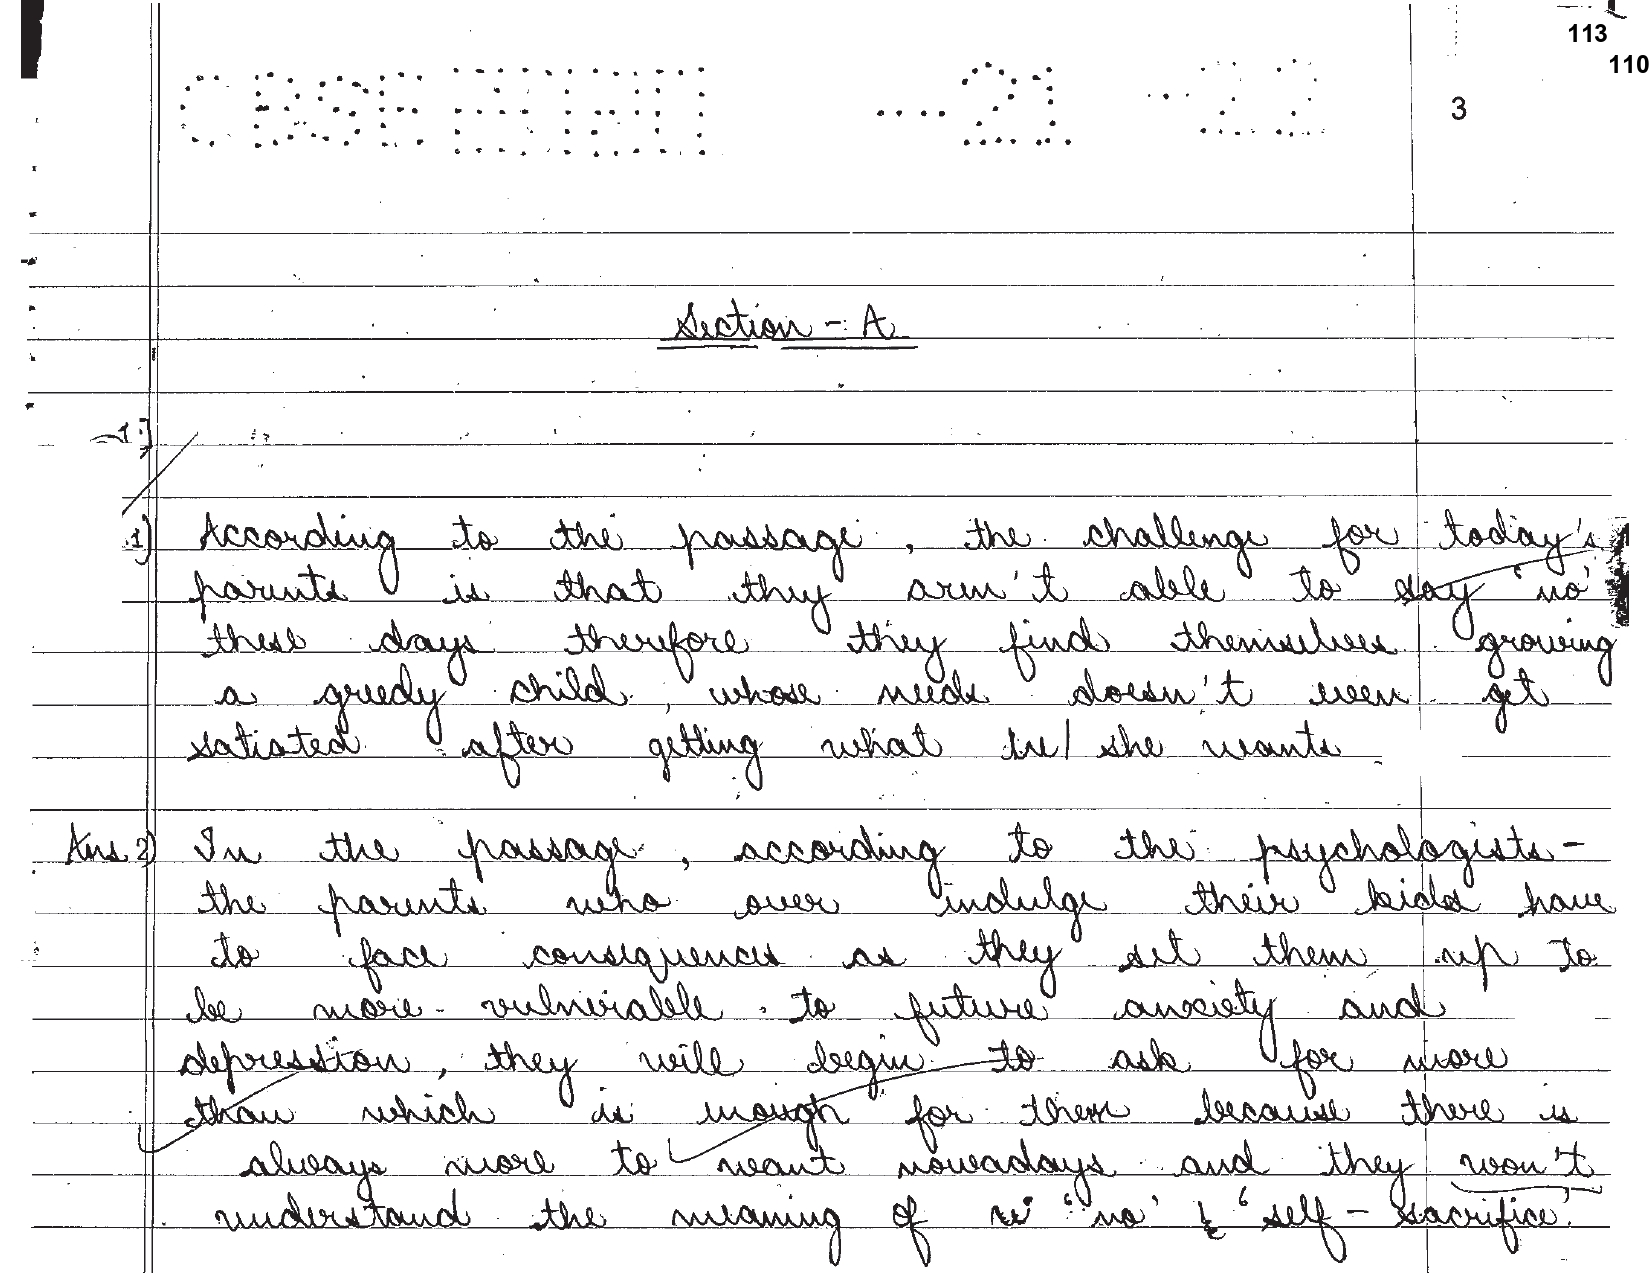 113
110
CBSE
21
22
3
Section - A
1)
1) According to the passage, the challenge for today's
parents is that they aren't able to say 'no'
these days therefore they find themselves growing
a greedy child, whose needs doesn't even get
satiated after getting what he/she wants.
Ans 2) In the passage, according to the psychologists -
the parents who over indulge their kids have
to face consequences as they set them up to
be more vulnerable to future anxiety and
depression, they will begin to ask for more
than which is enough for them because there is
always more to want nowadays and they won't
understand the meaning of 'no' & 'self - sacrifice'.